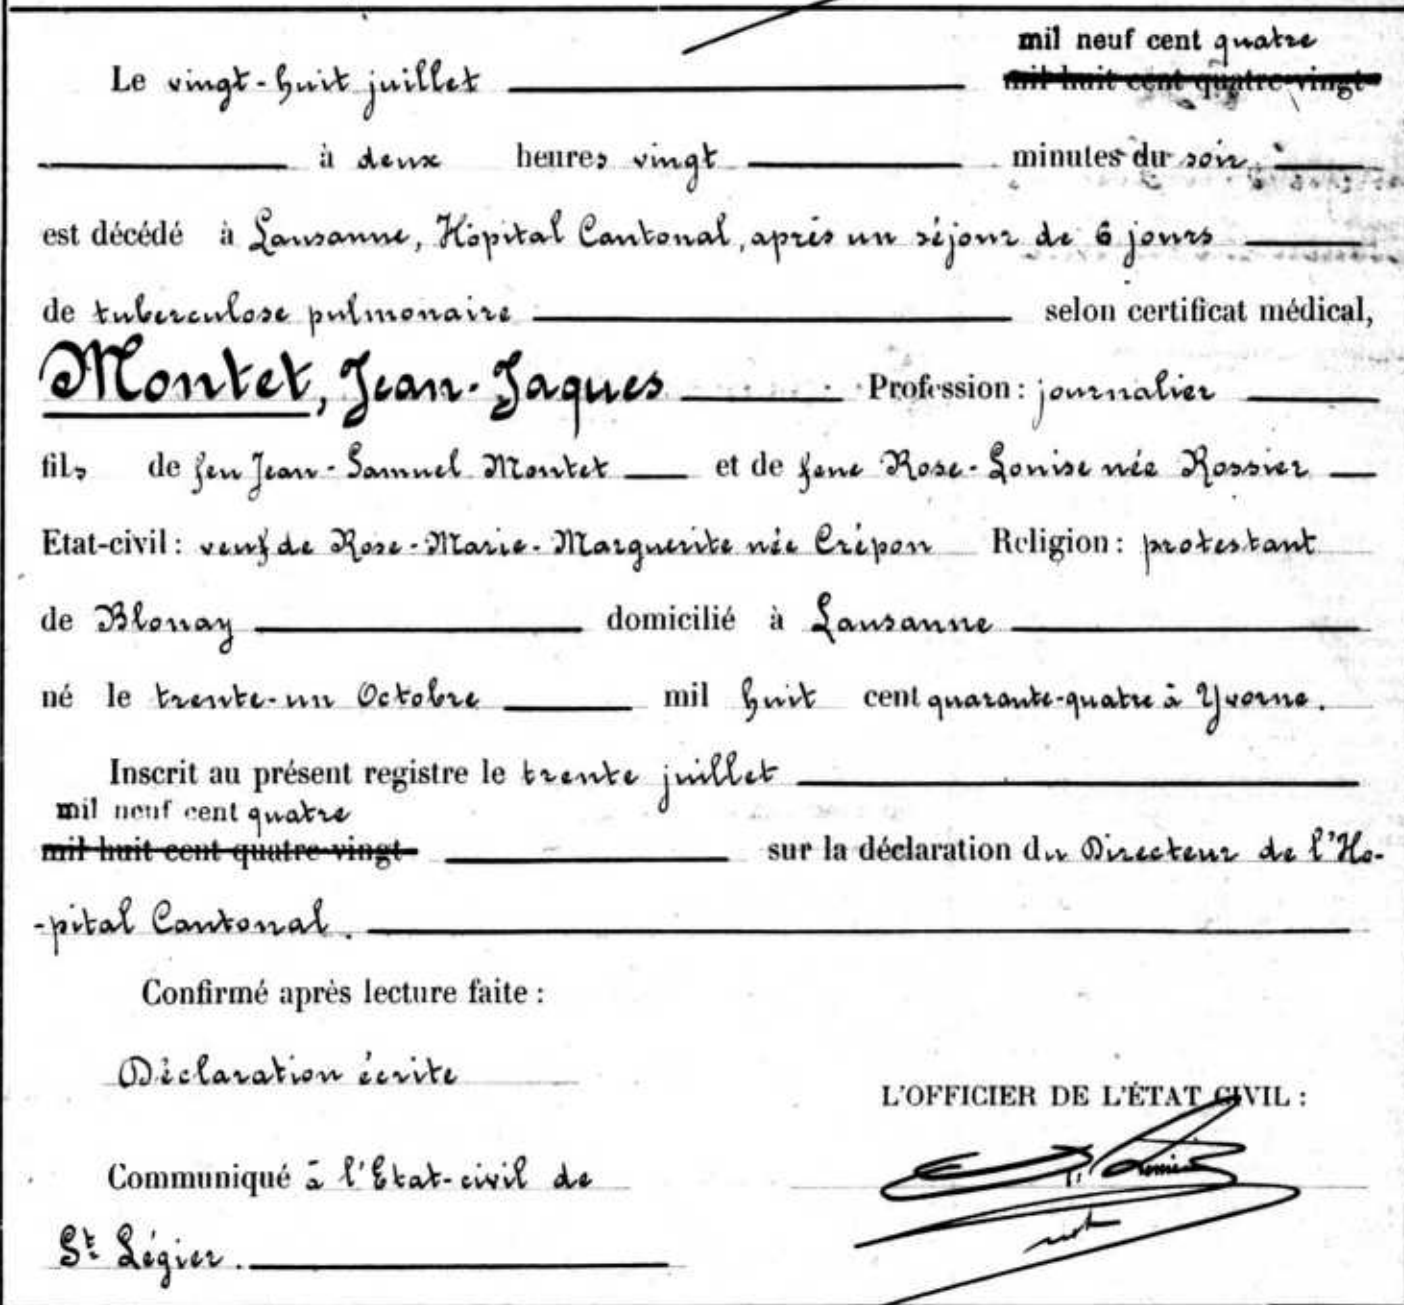 mil neuf cent quatre
Le vingt-huit juillet mil huit cent quatre-vingt
à deux heures vingt minutes du soir
est décédé à Lausanne, Hôpital Cantonal, après un séjour de 6 jours
de tuberculose pulmonaire selon certificat médical,
Montet, Jean-Jaques Profession : journalier
fils de feu Jean-Samuel Montet et de feue Rose-Louise née Rossier
Etat-civil : veuf de Rose-Marie-Marguerite née Crépon Religion : protestant
de Blonay domicilié à Lausanne
né le trente-un Octobre mil huit cent quarante-quatre à Yvorne.
Inscrit au présent registre le trente juillet
mil neuf cent quatre
mil huit cent quatre-vingt sur la déclaration du Directeur de l'Ho-
-pital Cantonal.
Confirmé après lecture faite :
Déclaration écrite
L'OFFICIER DE L'ÉTAT CIVIL :
Communiqué à l'Etat-civil de
St Légier.